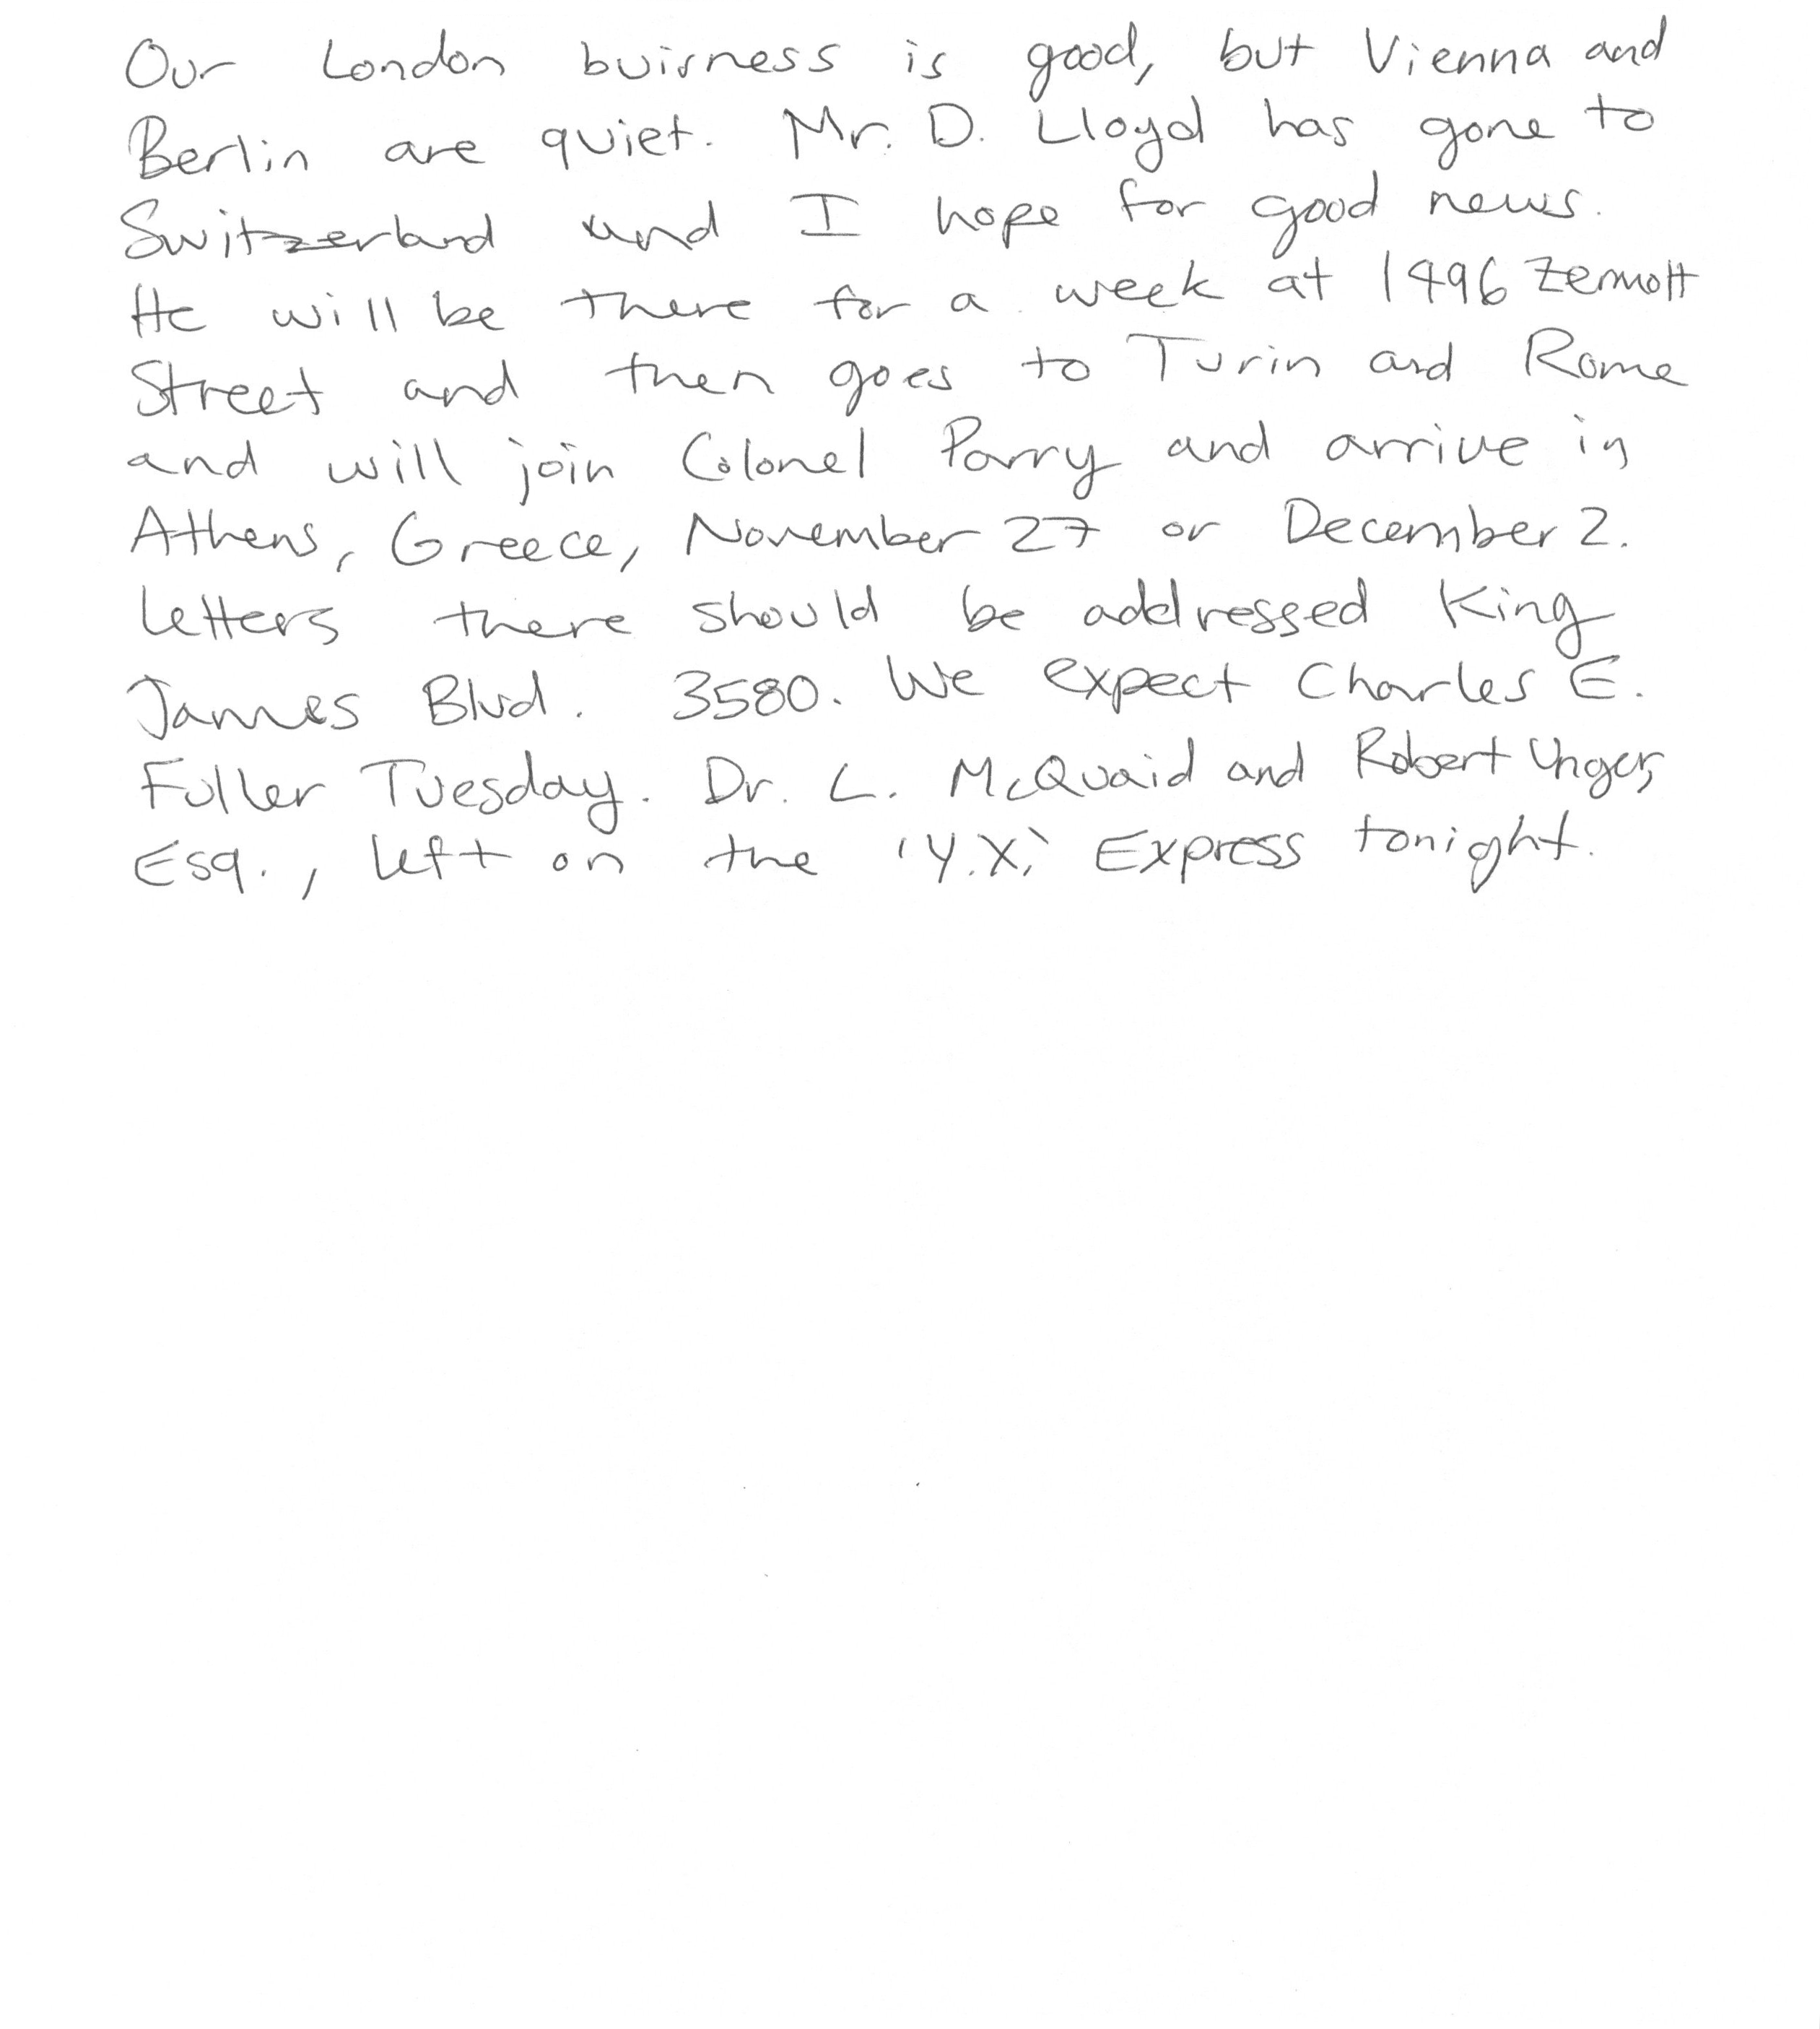 Our London buisness is good, but Vienna and
Berlin are quiet. Mr. D. Lloyd has gone to
Switzerland and I hope for good news.
He will be there for a week at 1496 Zermott
Street and then goes to Turin and Rome
and will join Colonel Parry and arrive in
Athens, Greece, November 27 or December 2.
Letters there should be addressed King
James Blvd. 3580. We expect Charles E.
Fuller Tuesday. Dr. L. McQuaid and Robert Unger,
Esq., left on the 'Y.X.' Express tonight.